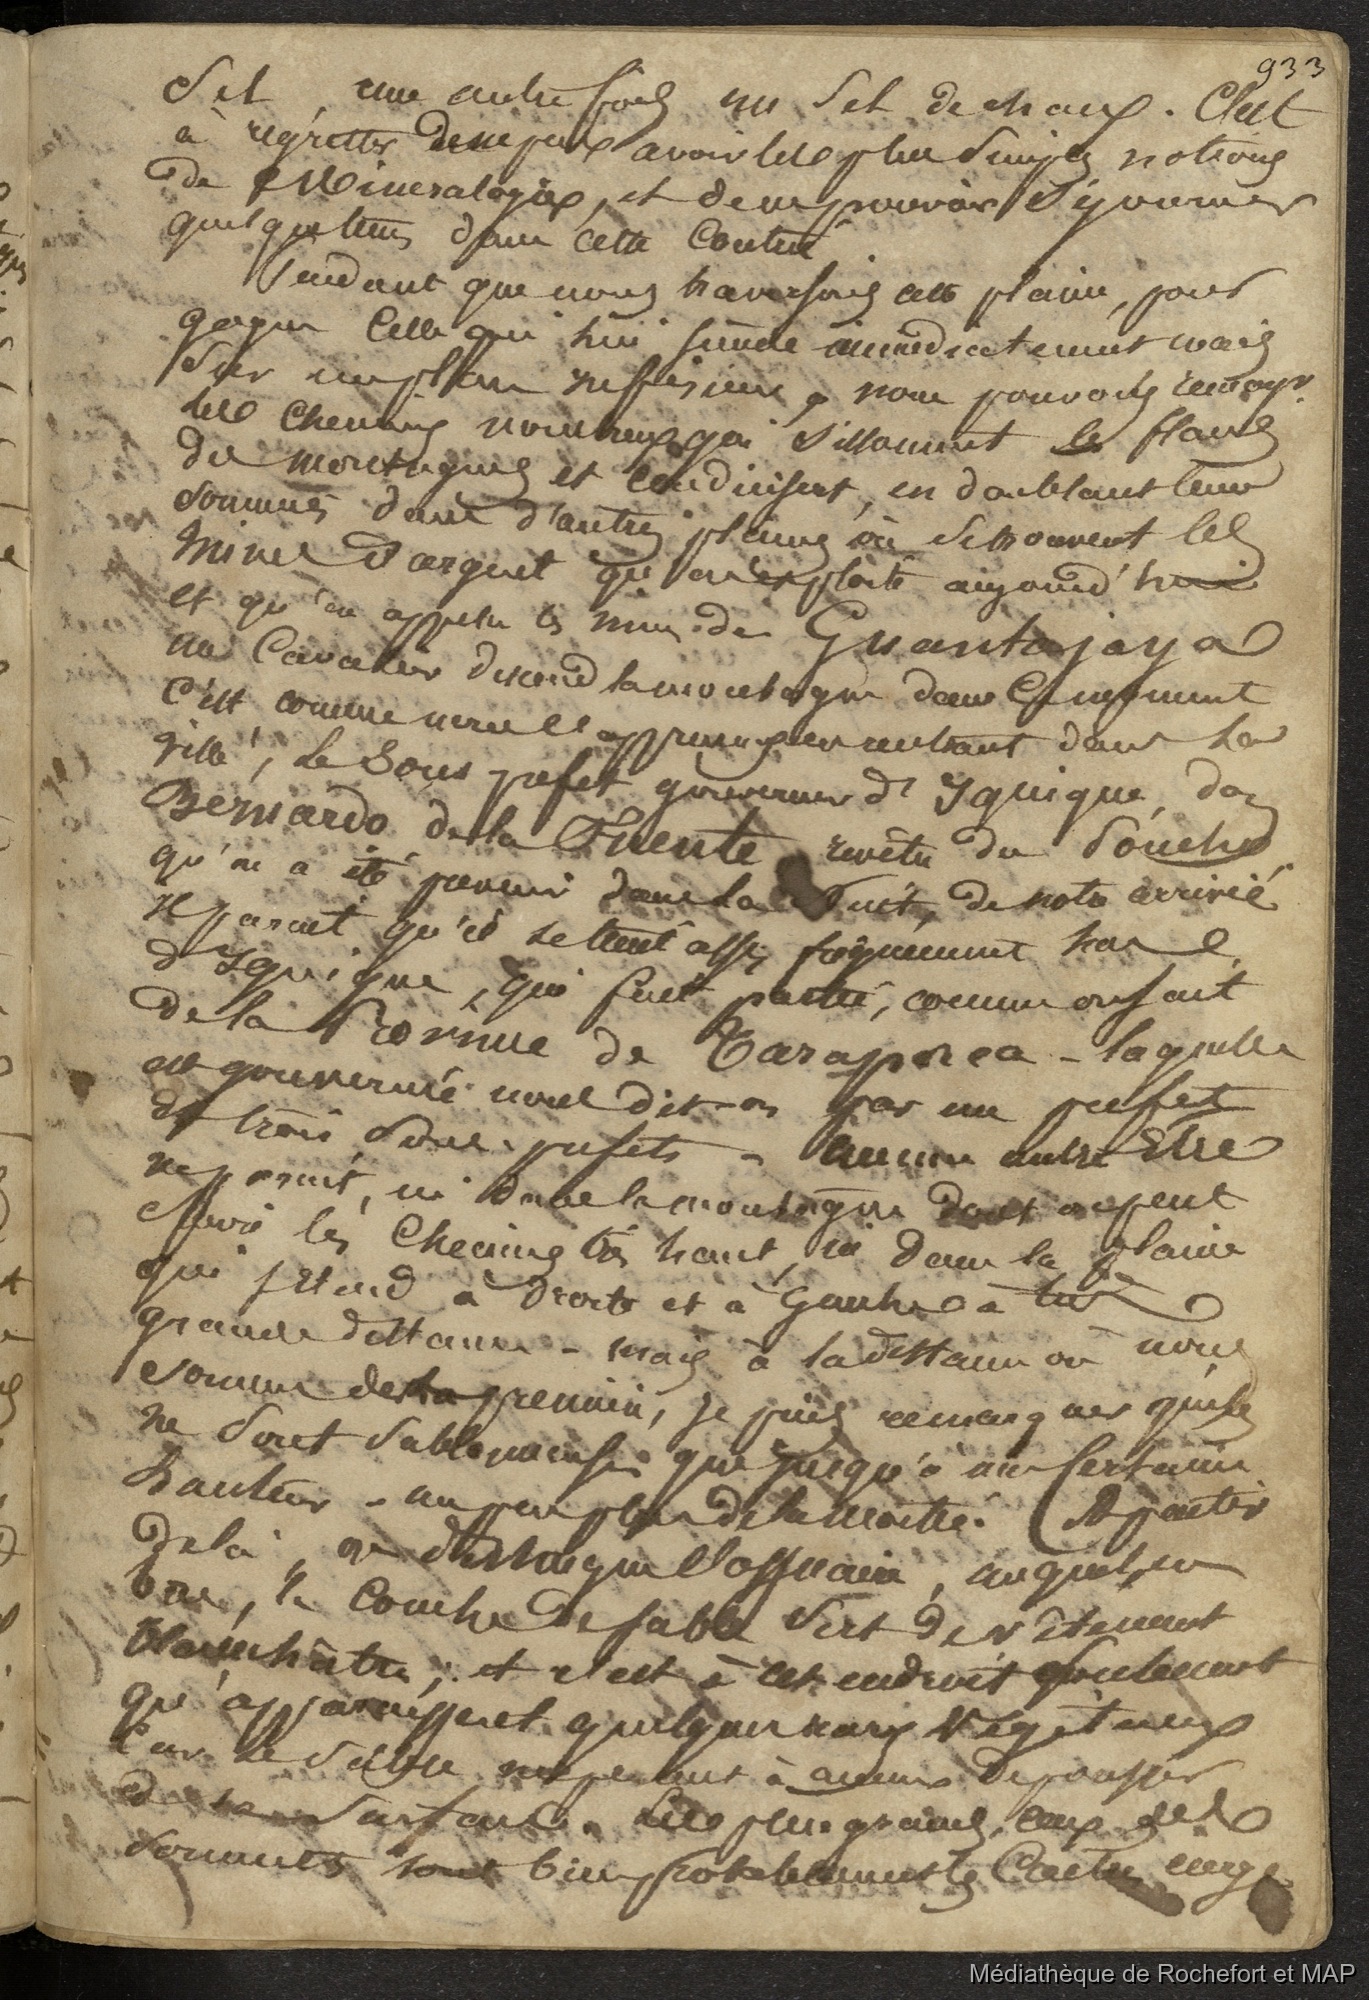 933
Sel, une autre fois un sel de chaux. C'est
à régretter de ne pas avoir les plus simples notions
de Minéralogie, et de ne pouvoir séjourner
quelque tems dans cette contrée
Pendant que nous traversions cette plaine, pour
gagner celle qui lui succède immédiatement mais
sur un plan inférieur, nous pouvons remarqr.
les chemins nombreux qui sillonnent les flancs
des montagnes et conduisent, en doublant leurs
sommets dans d'autres plaines où se trouvent les
mines d'argent qu'on exploite aujourd'hui
et qu'on appelle les mines de Guantajaya
un Cavalier descend la montagne dans ce moment
c'est, comme nous l'apprenons en entrant dans la
ville, le Sous préfet gouverneur d'Yquique, don
Bernardo de la Fuente, revêtu du Poncho
qu'on a été prévenir dans la nuit, de notre arrivée
Il parait qu'il se tient assez fréquemment hors
d'Yquique, qui fait partie, comme on sait
de la Province de Tarapaca - laquelle
est gouvernée nous dit-on par un préfet
et trois sous-préfets - aucun autre Etre
ne parait, ni dans la montagne dont on peut
suivre les chemins très haut, ni dans la plaine
qui s'étend à droite et à gauche à une
grande distance - mais à la distance où nous
sommes des premières, je puis remarquer qu'elles
ne sont sablonneuses que jusqu'à une certaine
hauteur - un peu plus de la moitié. A partir
de là, on distingue l'ossuaire, auquel, en
bas, la couche de sable sert de vêtement
blanchâtre; et c'est à cet endroit seulement
qu'apparaissent quelques rares végétaux
Car le sable ne permet à aucun de pousser
à sa surface. Les plus grands, ceux des
sommets sont bien probablement les Cactus cierge
Médiathèque de Rochefort et MAP